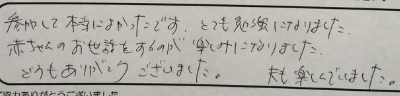 参加して本当によかったです。とても勉強になりました。
赤ちゃんのお世話をするのが楽しみになりました。
どうもありがとうございました。 夫も楽しんでいました。
ご協力ありがとうございました